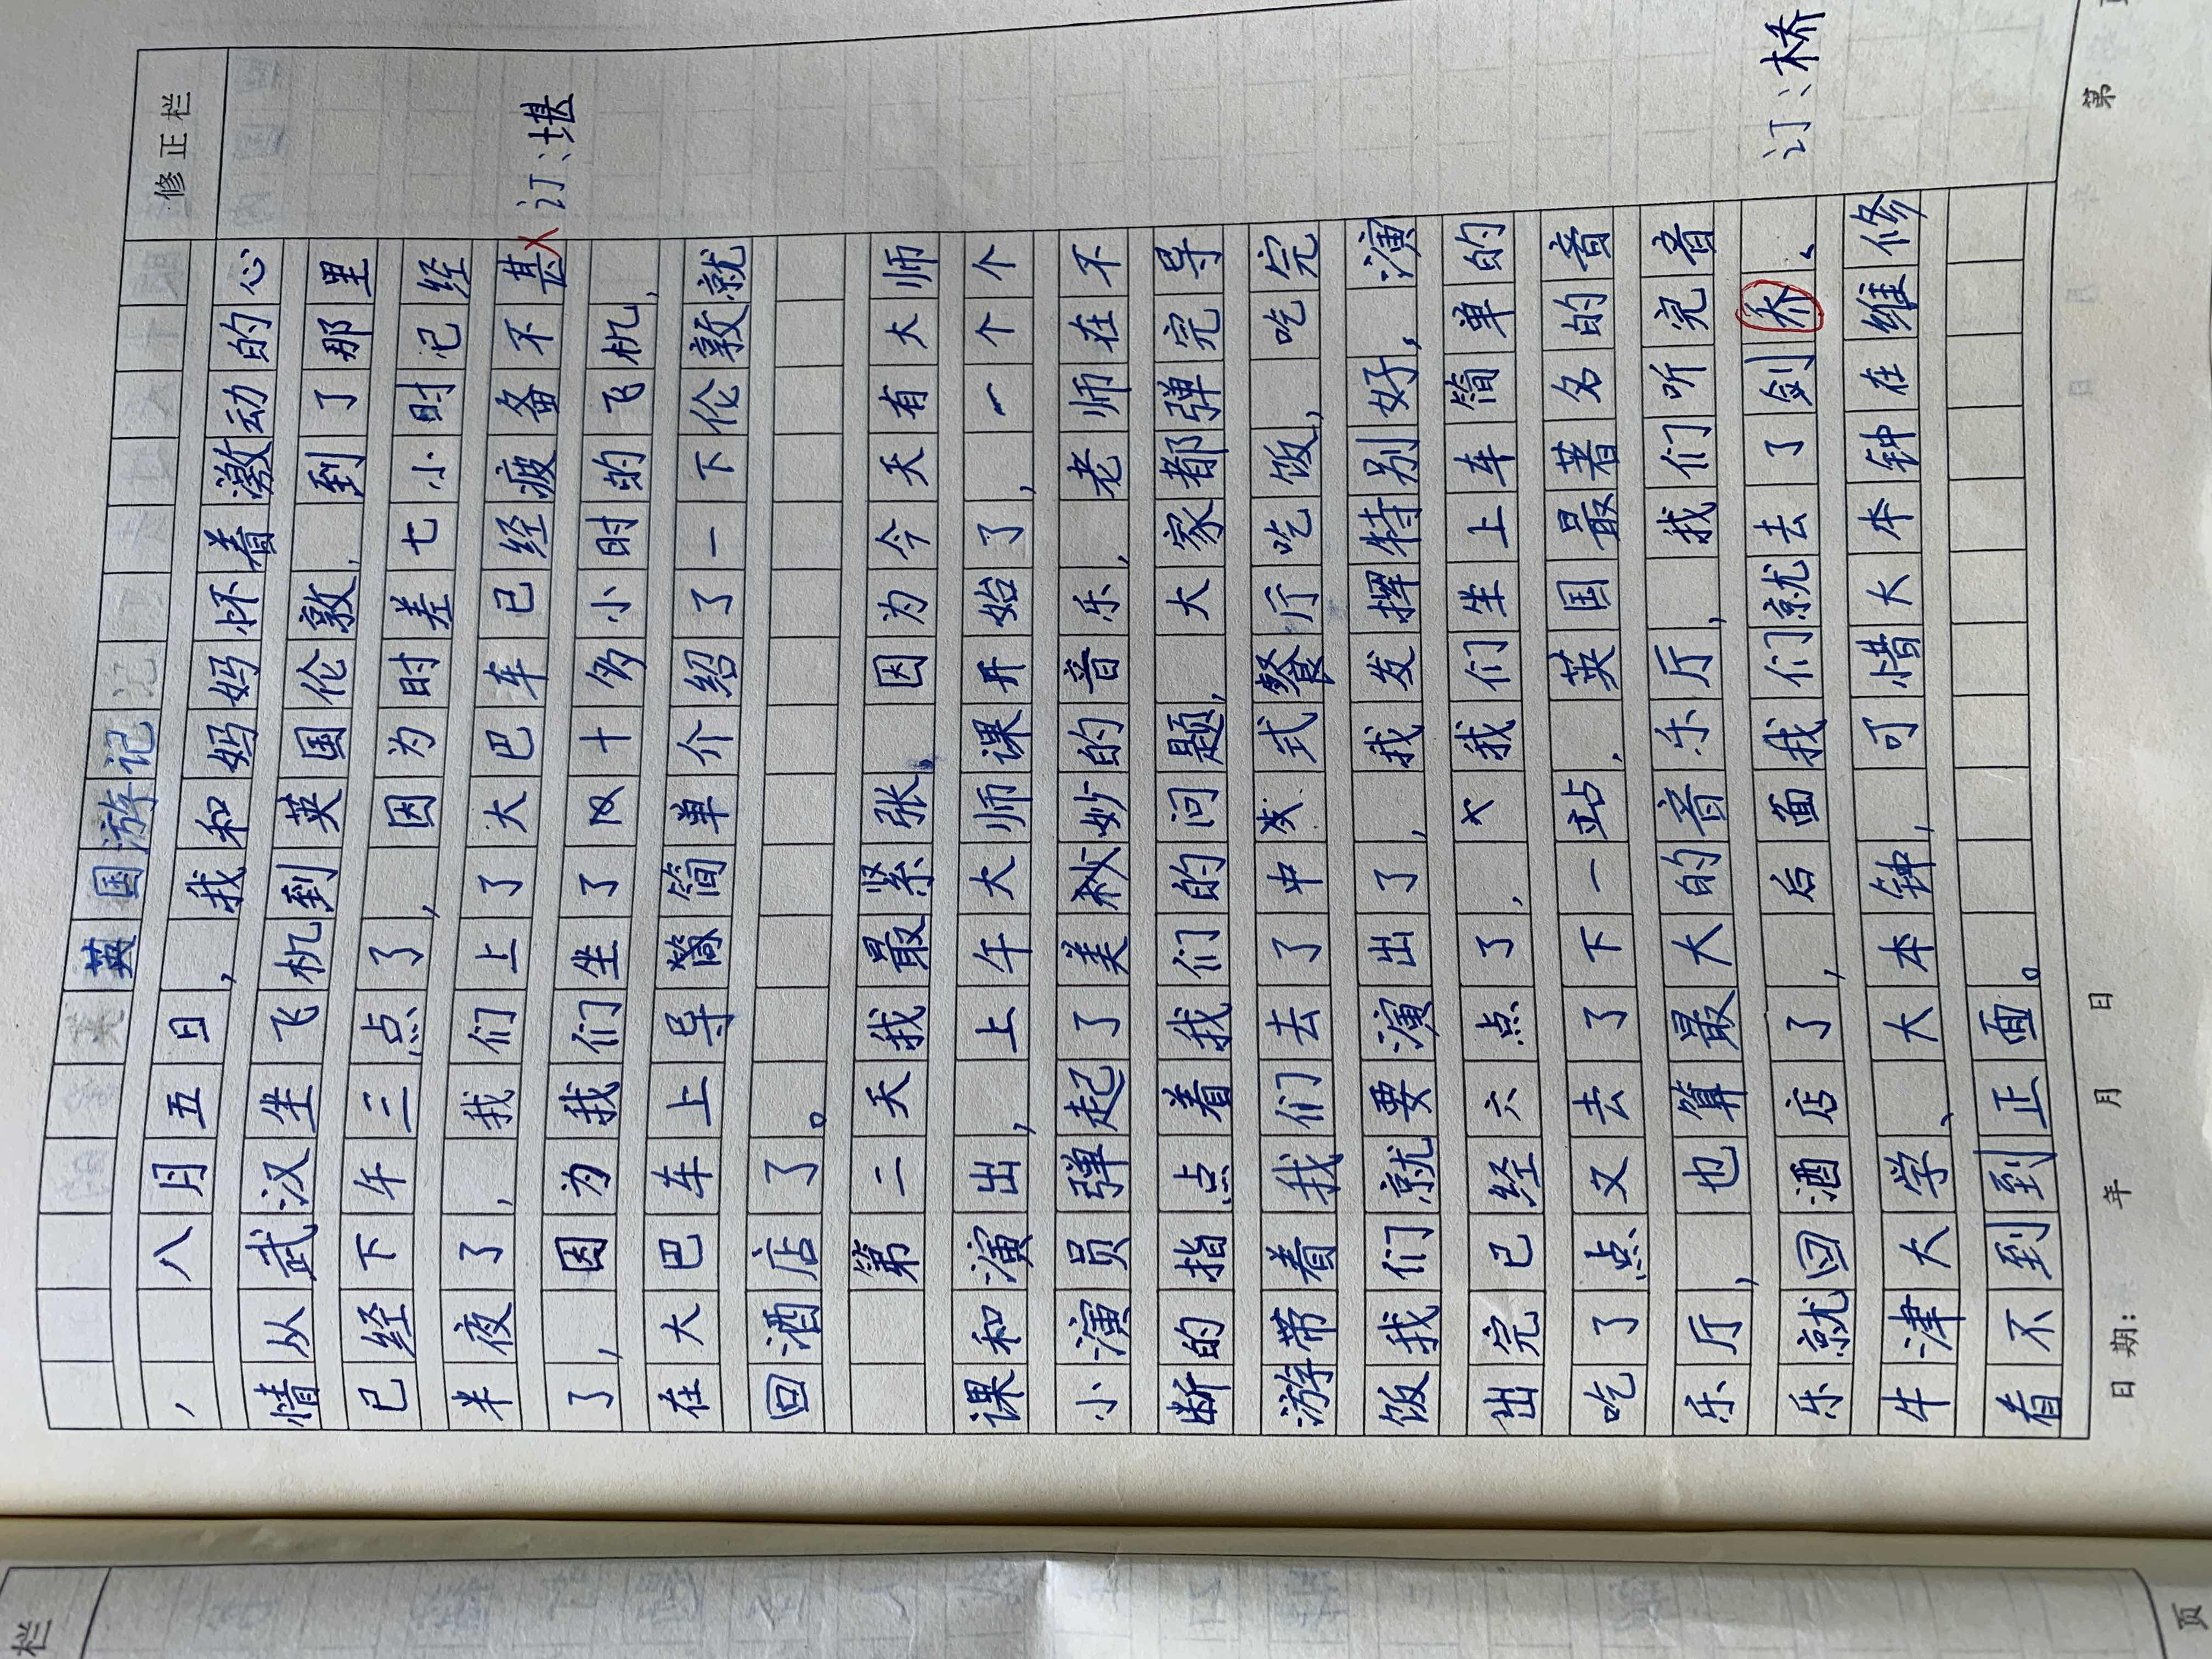 修正栏
英国游记
、八月五日,我和妈妈怀着激动的心
情从武汉坐飞机到英国伦敦,到了那里
已经下午三点了,因为时差七小时记经
半夜了,我们上了大巴车已经疲备不甚
订:堪
了,因为我们坐了十多小时的飞机,
在大巴车上导简单介绍了一下伦敦就
回酒店了。
第二天我最紧张,因为今天有大师
课和演出,上午大师课开始了,一个个
小演员弹起了美妙的音乐,老师在不
断的指点着我们的问题,大家都弹完导
游带着我们去了中式餐厅吃饭,吃完
饭我们就要演出了,我发挥特别好,演
出完已经六点了,我们坐上车简单的
吃了点又去了下一站,英国最著名的音
乐厅,也算最大的音乐厅,我们听完音
乐就回酒店了,后面我们就去了剑乔、
订:桥
牛津大学、大本钟,可惜大本钟在维修
看不到正面。
日期: 年 月 日
第
栏
页